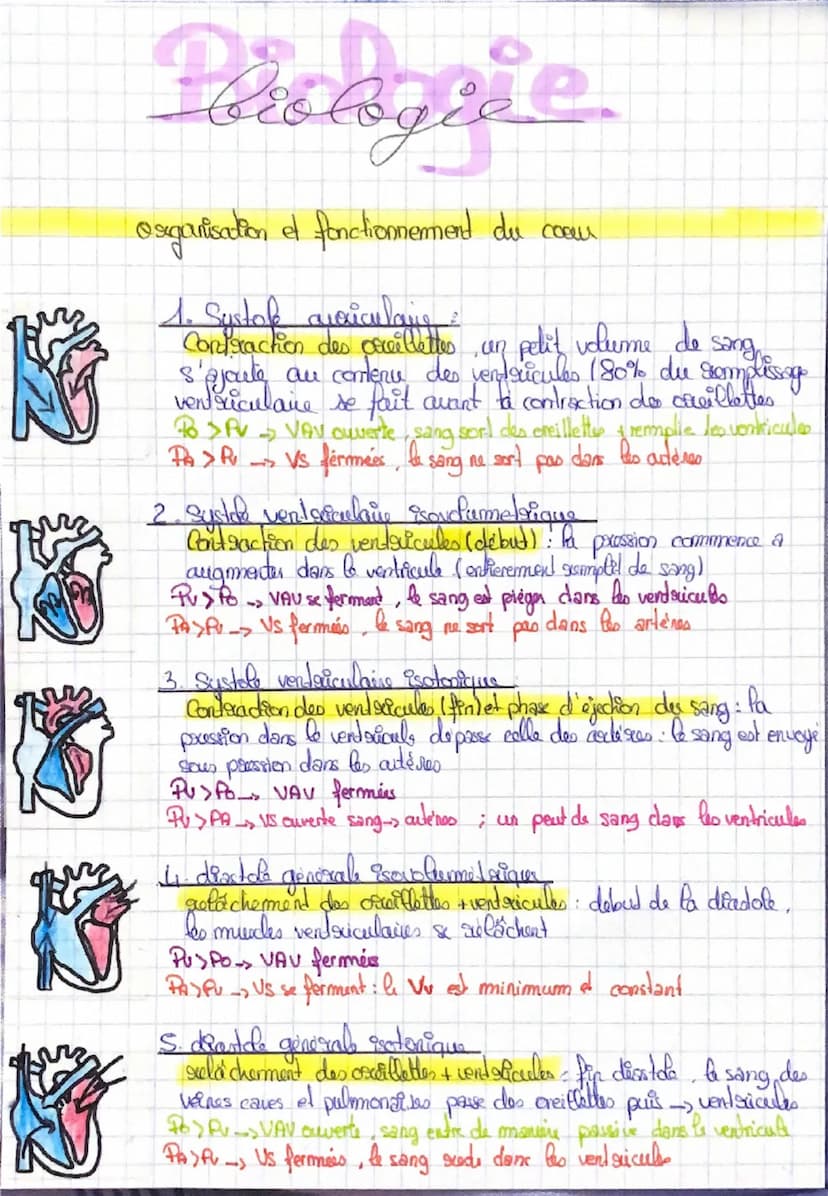 Biologie
biologie
organisation et fonctionnement du coeur
1. Systole auriculaire :
Contraction des oreillettes, un petit volume de sang
s'ajoute au contenu des ventricules (80% du remplissage
ventriculaire se fait avant la contraction des oreillettes
Po > Pv → VAV ouverte, sang sort des oreillettes + remplie les ventricules
PA > Pv → VS férmées, le sang ne sort pas dans les artères
2. Systole ventriculaire isovolumétrique
Contraction des ventricules (début) : la pression commence à
augmenter dans le ventricule (entièrement rempli de sang)
Pv > Po → VAV se ferment, le sang est piégé dans les ventricules
PA > Pv → VS fermées, le sang ne sort pas dans les artères
3. Systole ventriculaire isotonique
Contraction des ventricules (fin) et phase d'éjection du sang : la
pression dans le ventricule dépasse celle des artères : le sang est envoyé
sous pression dans les artères
Pv > Po → VAV fermées
Pv > PA → VS ouverte sang → artères ; un peut de sang dans les ventricules
4. diastole générale isovolumétrique
relâchement des oreillettes + ventricules : début de la diastole,
les muscles ventriculaires se relâchent
Pv > Po → VAV fermées
PA > Pv → VS se ferment : le Vv est minimum et constant
5. diastole générale isotonique
relâcherment des oreillettes + ventricules : fin diastole, le sang des
veines caves et pulmonaires passe des oreillettes puis → ventricules
Po > Pv → VAV ouverte, sang entre de manière passive dans le ventricule
PA > Pv → VS fermées, le sang dans les ventricules